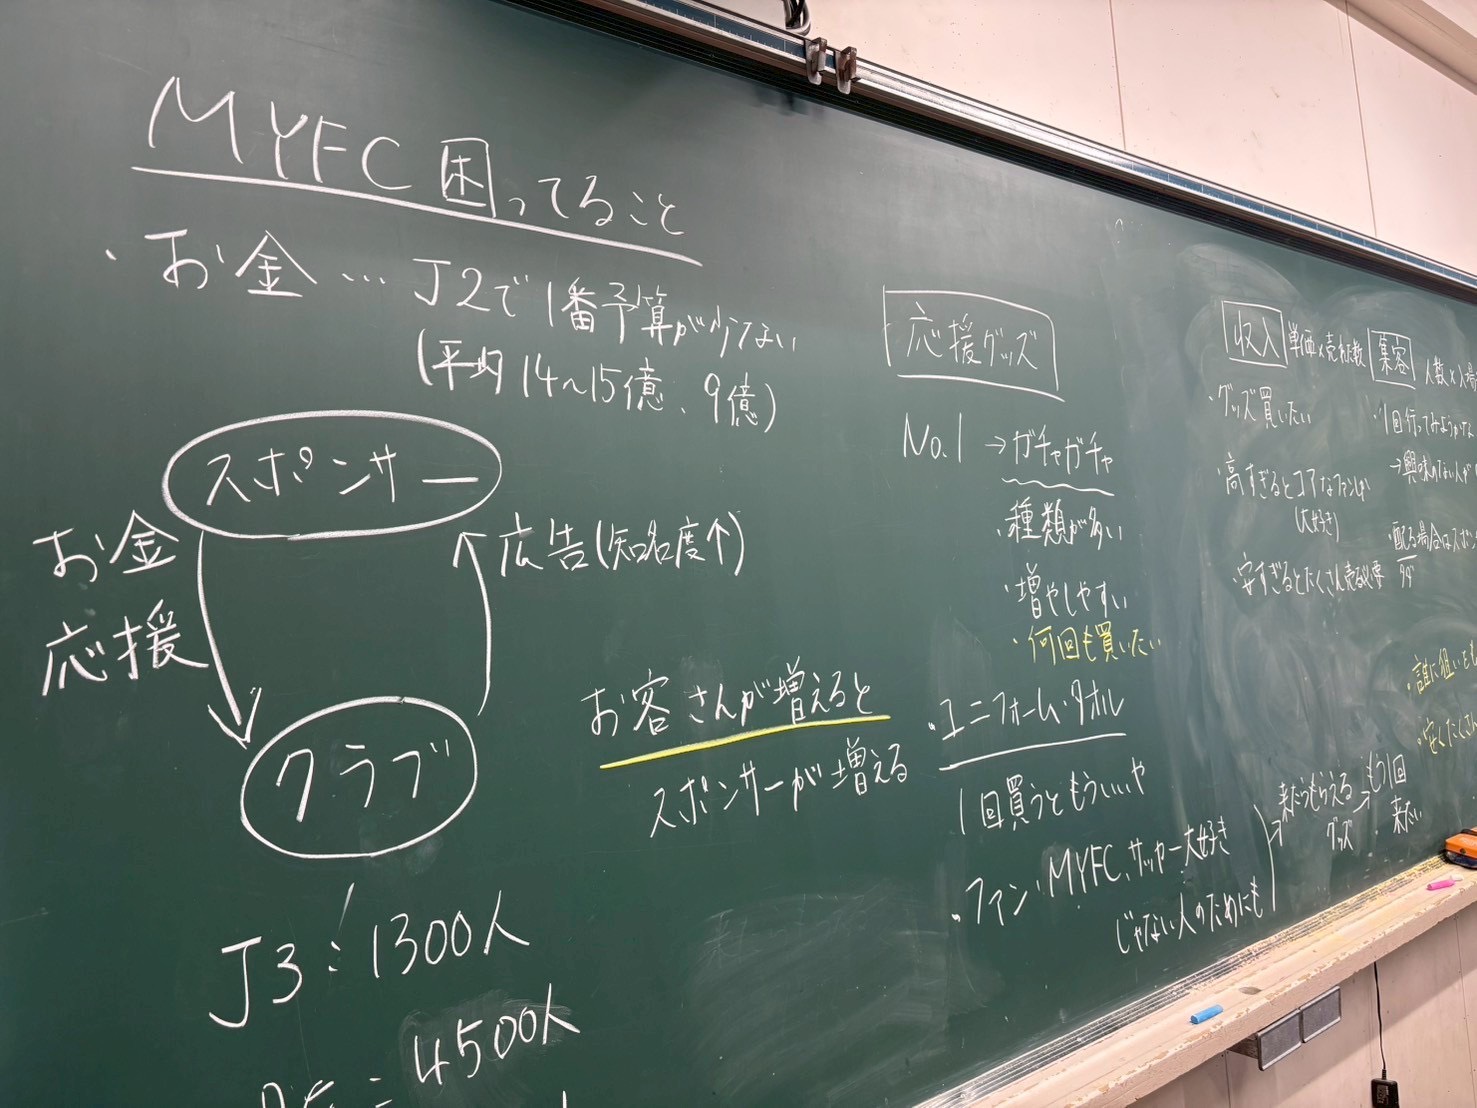 MYFC 困ってること
・お金…J2で1番予算が少ない
(平均14〜15億、9億)
スポンサー
お金
応援
広告(知名度↑)
クラブ
お客さんが増えると
スポンサーが増える
J3:1300人
4500人
応援グッズ
No.1→ガチャガチャ
・種類が多い
・増やしやすい
・何回も買いたい
・ユニフォーム・タオル
1回買うともういいや
・ファン・MYFC、サッカー大好き
じゃない人のためにも
→来たらもらえるグッズ
→もう1回来たい
収入 単価×売れた数
・グッズ買いたい
・高すぎるとコアなファンしか
(大好き)
・安すぎるとたくさん売る必要
集客 人数×入場
・1回行ってみようかな
→興味のない人が
・配る場合はスポン
・誰に狙いを
・安くたくさん